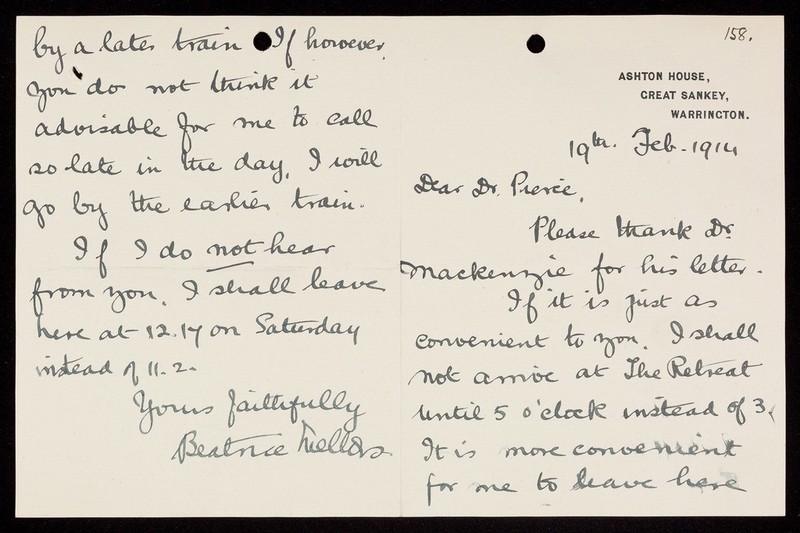 158.
ASHTON HOUSE,
GREAT SANKEY,
WARRINGTON.
19th. Feb. 1914
Dear Dr. Pierce,
Please thank Dr.
Mackenzie for his letter.
If it is just as
convenient to you, I shall
not arrive at The Retreat
until 5 o'clock instead of 3.
It is more convenient
for me to leave here
by a later train If however,
you do not think it
advisable for me to call
so late in the day, I will
go by the earlier train.
If I do not hear
from you, I shall leave
here at 12.17 on Saturday
instead of 11.2.
Yours faithfully
Beatrice Mellors